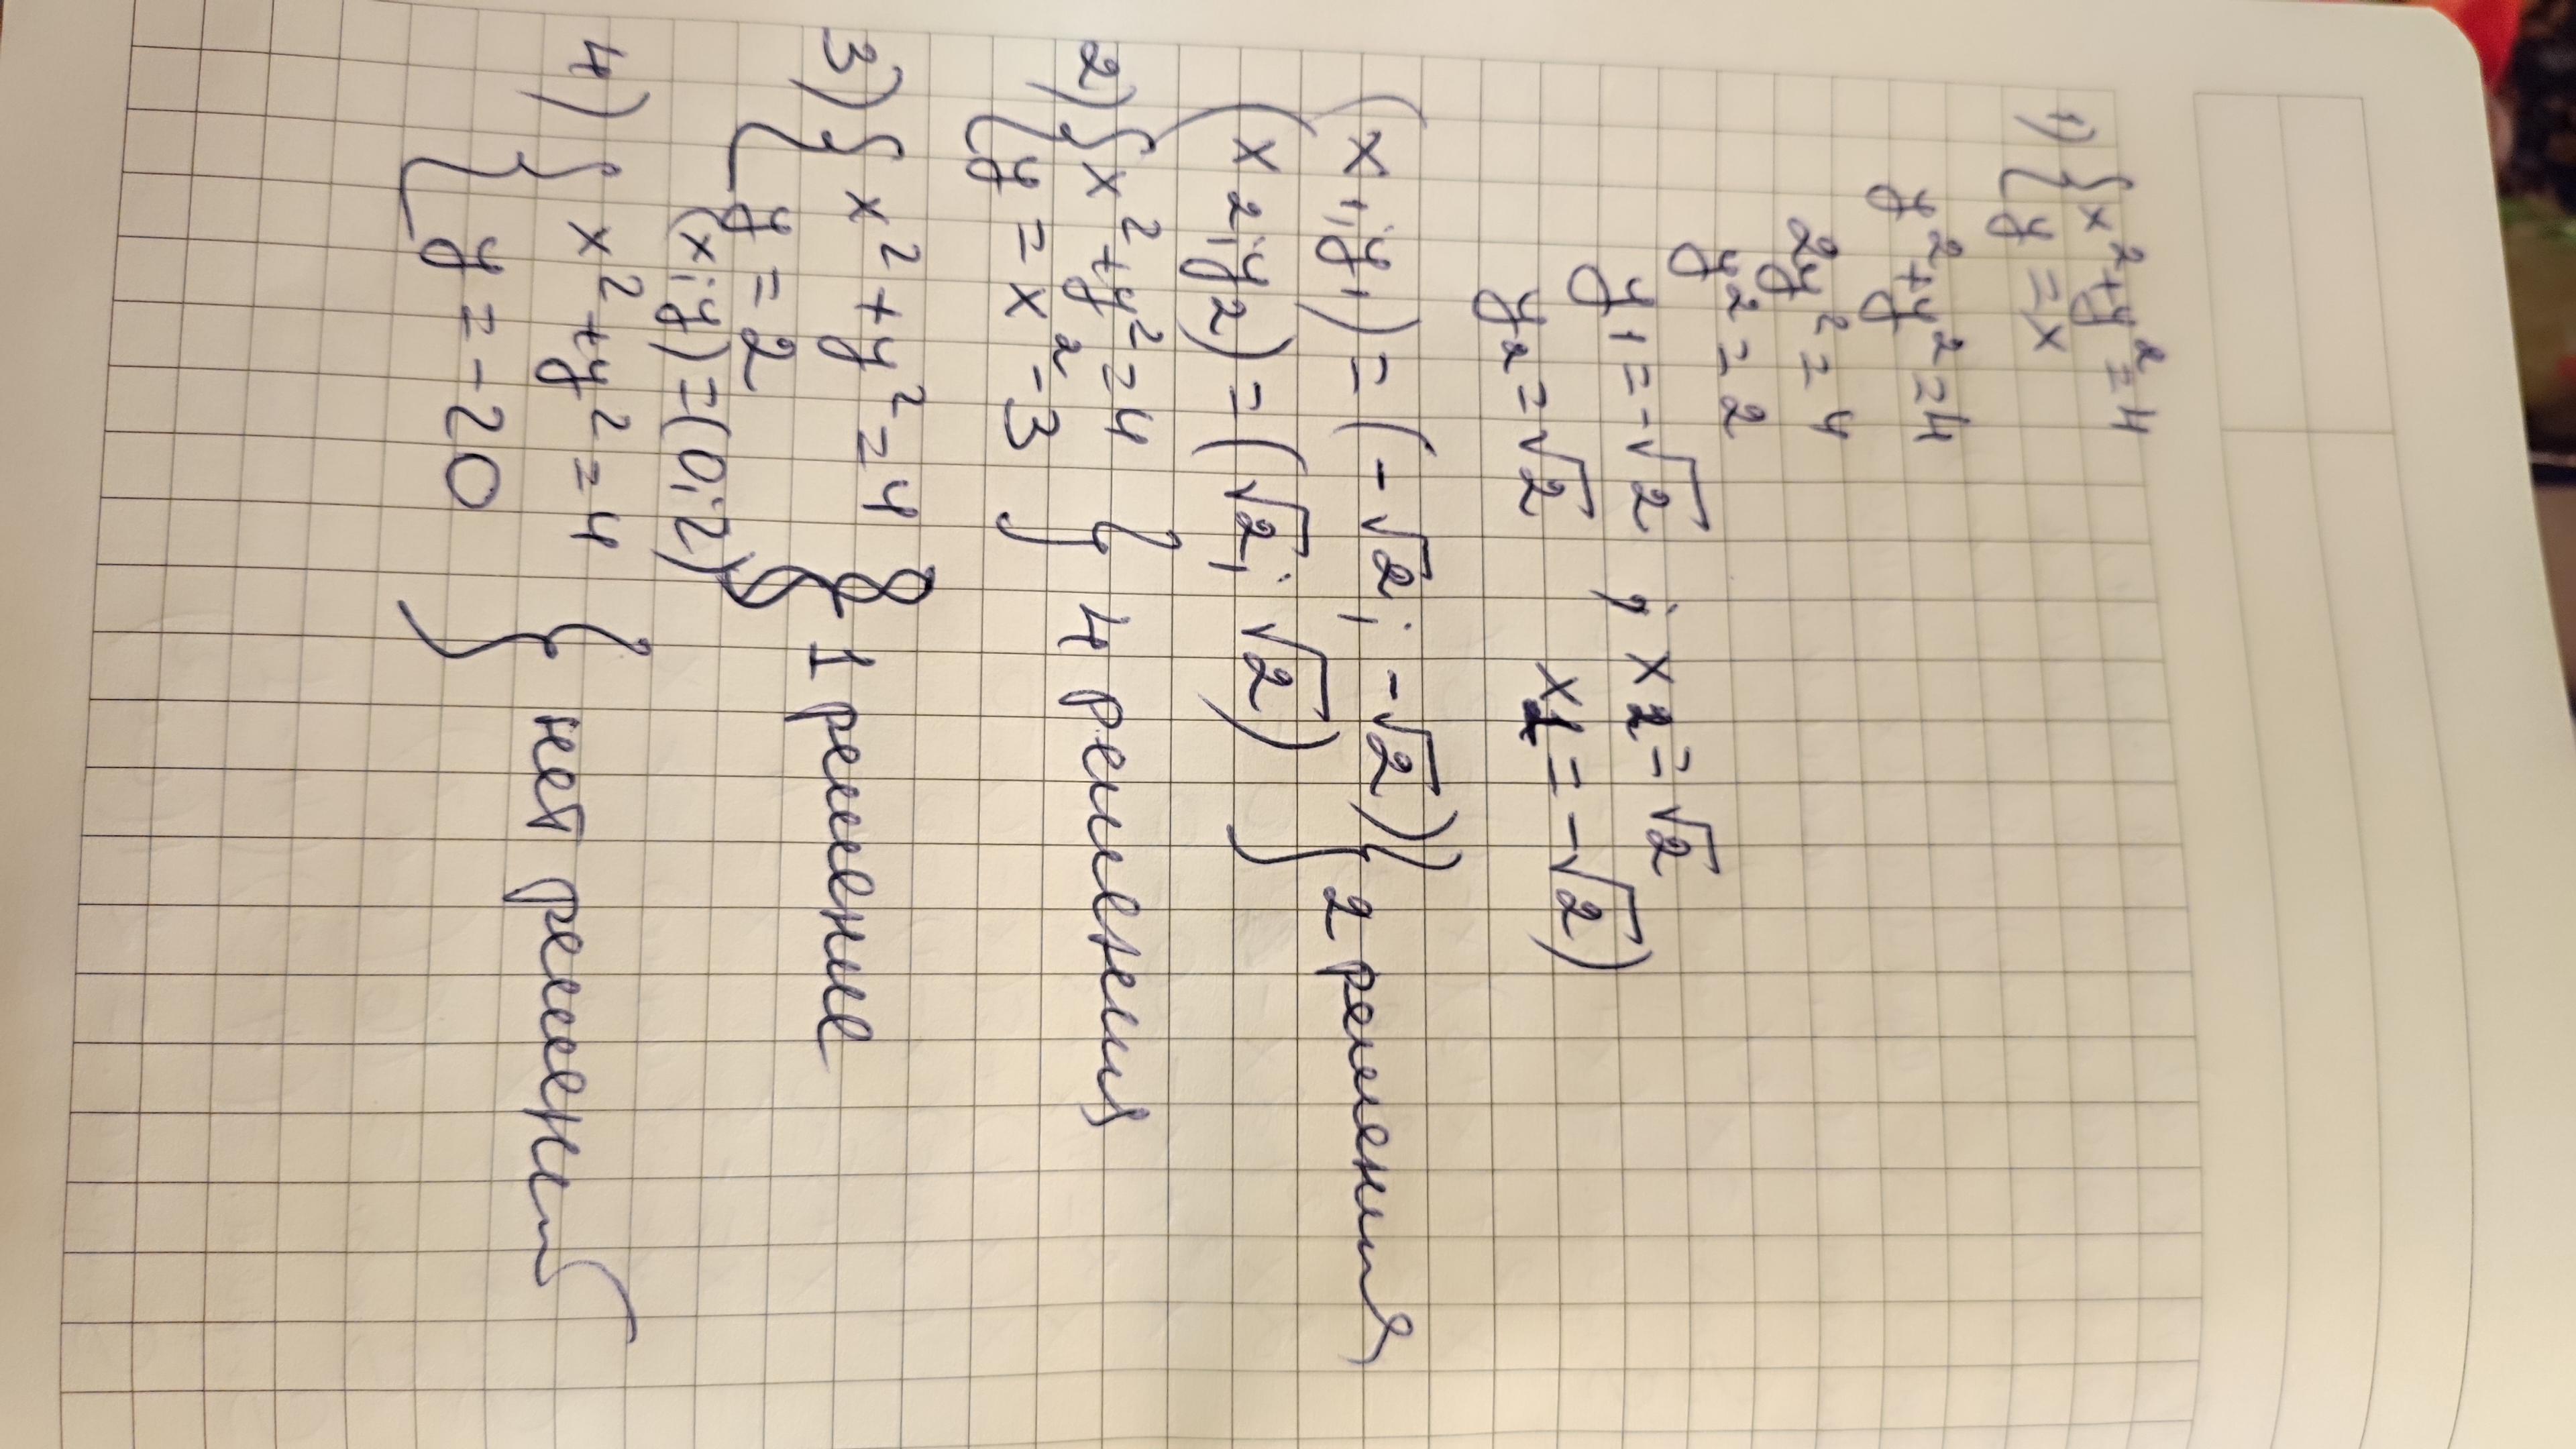 1) { x² + y² = 4
{ y = x
y² + y² = 4
2y² = 4
y² = 2
y1 = -√2 ; x2 = √2
y2 = √2 x1 = -√2)
(x1; y1) = (-√2; -√2)) } 2 решения
(x2; y2) = (√2; √2)
2) { x² + y² = 4 } 4 решения
{ y = x² - 3
3) { x² + y² = 4 } 1 решение
{ y = 2
(x; y) = (0; 2)
4) { x² + y² = 4 } нет решений
{ y = -20